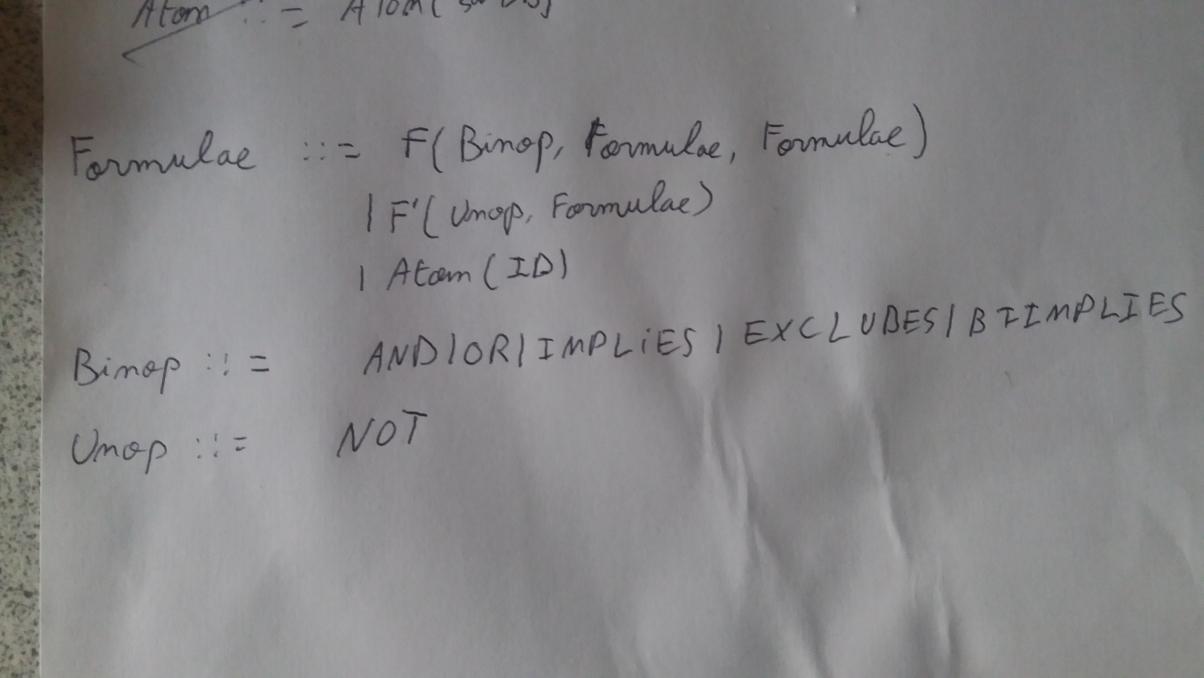 Atom ::= Atom(
Formulae ::= F(Binop, Formulae, Formulae)
| F'(Unop, Formulae)
| Atom(ID)
Binop ::= AND|OR|IMPLiES | EXCLUDES|BIIMPLIES
Unop ::= NOT